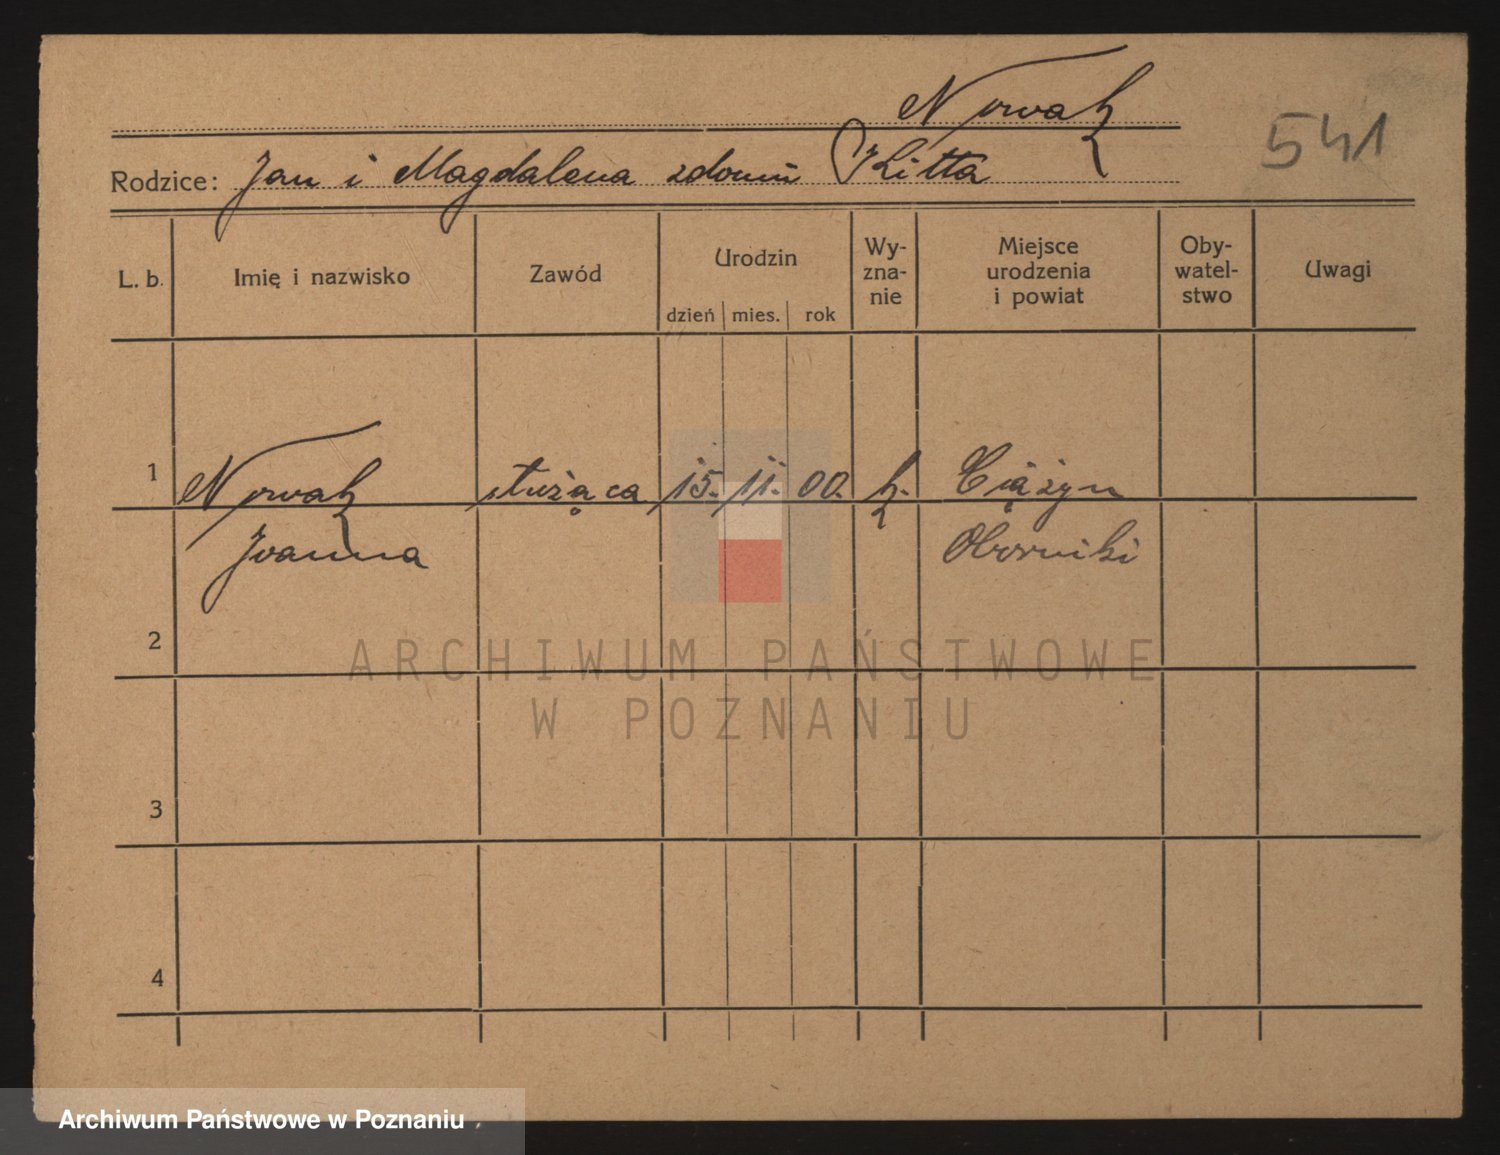 Nowak
541
Rodzice: Jan i Magdalena zdomu Kitta
L. b.
Imię i nazwisko
Zawód
Urodzin
dzień mies. rok
Wy-
zna-
nie
Miejsce
urodzenia
i powiat
Oby-
watel-
stwo
Uwagi
1 Nowak służąca 15. 11. 00. k. Ciążyn
Joanna Oborniki
2
3
4
ARCHIWUM PAŃSTWOWE
W POZNANIU
Archiwum Państwowe w Poznaniu